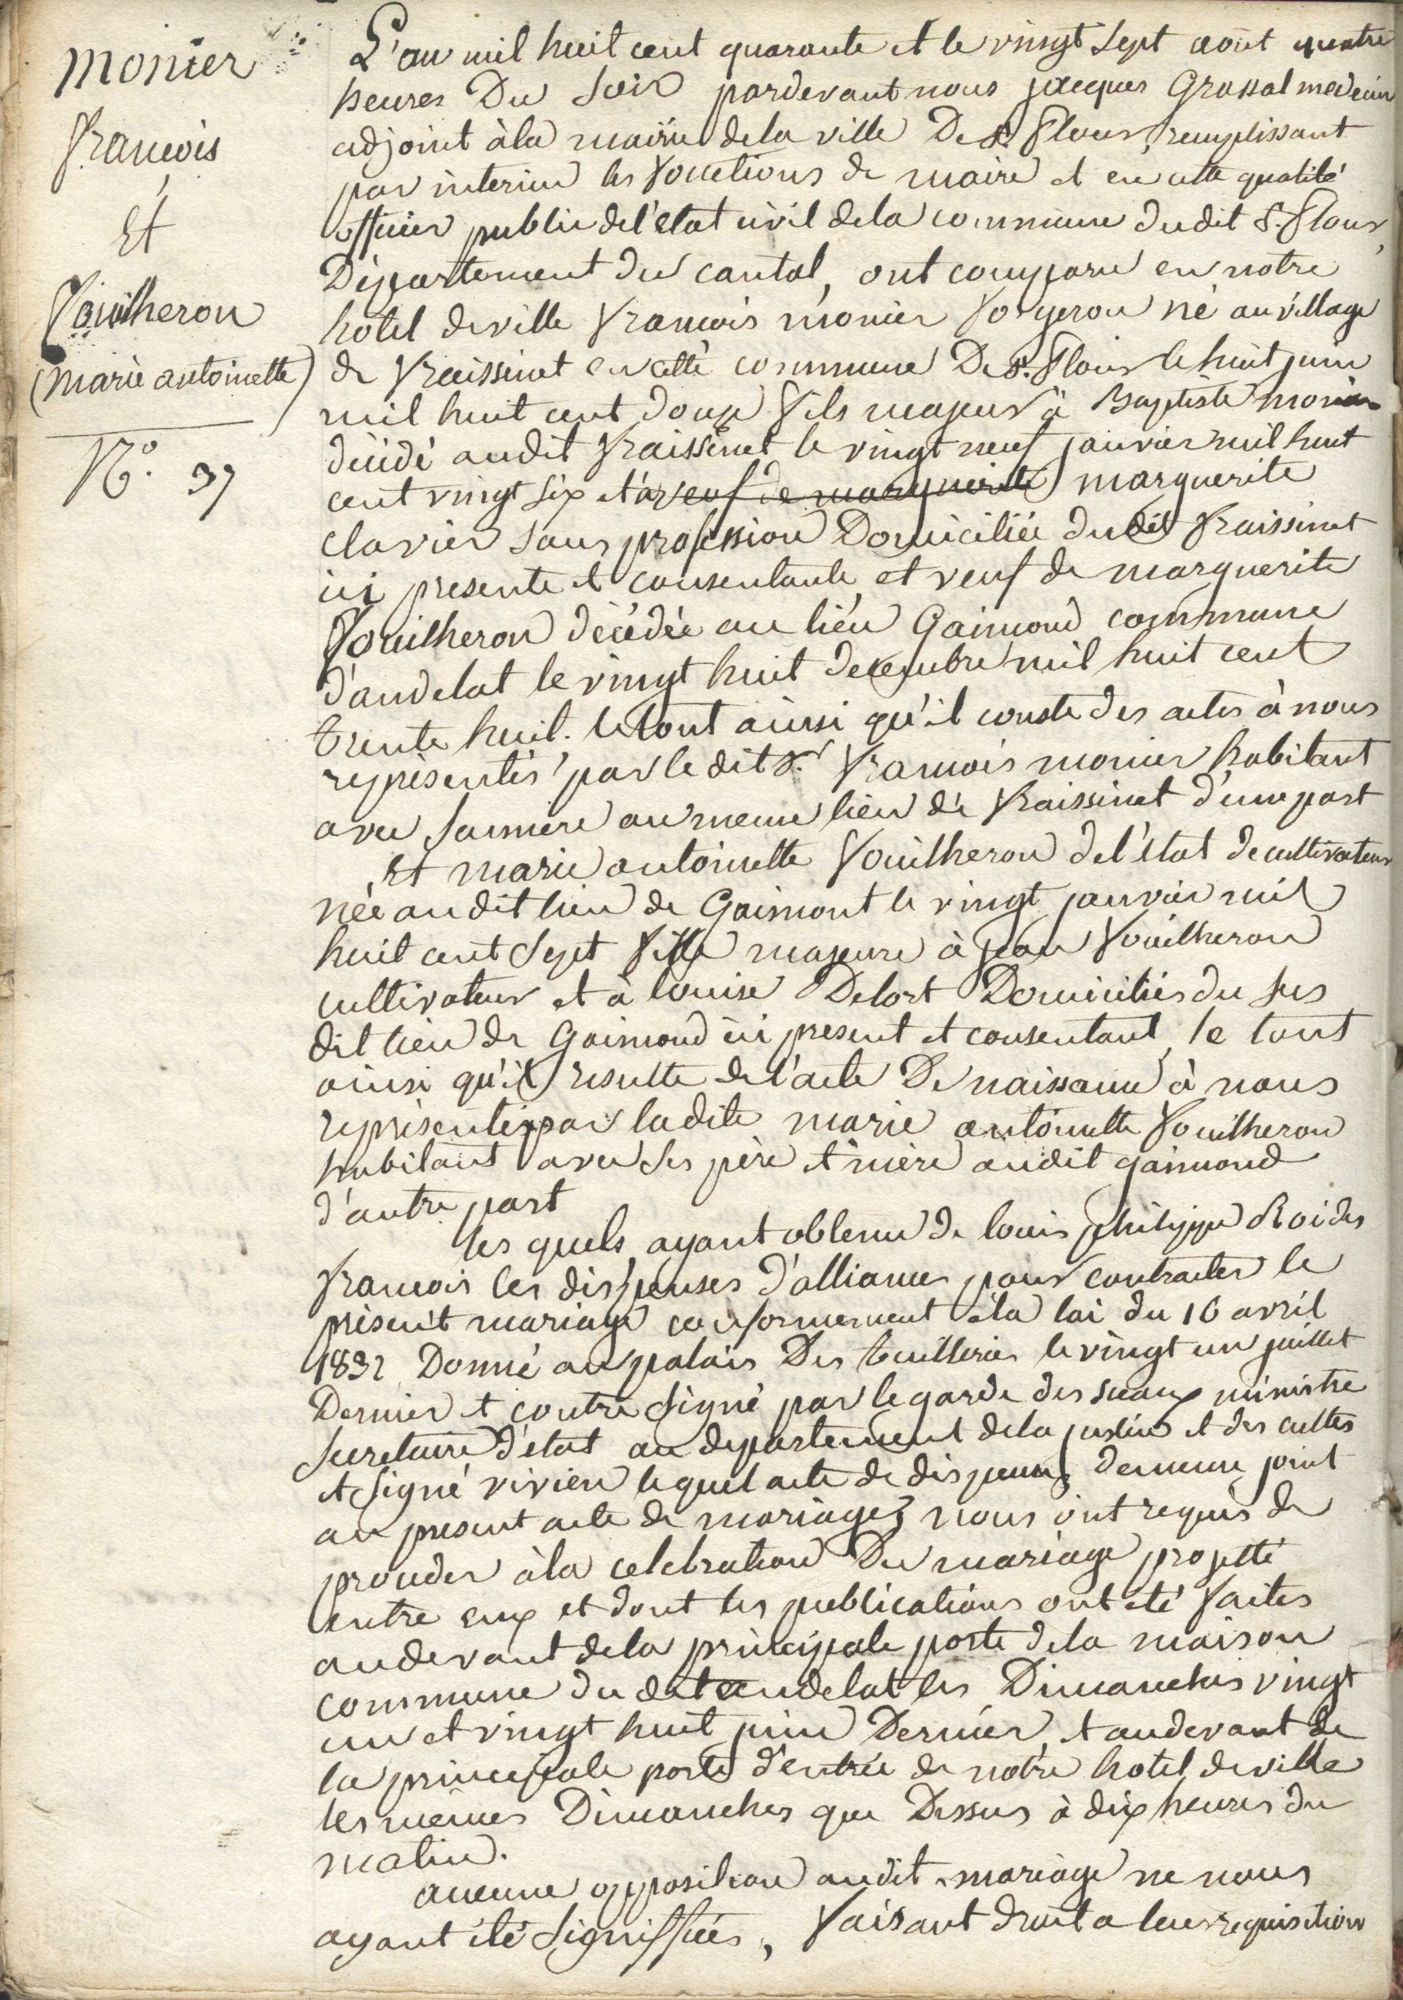 monier
francois
Et
fouilheron
(marie antoinette)
N°. 37
L'an mil huit cent quarante et le vingt sept aout quatre
heures Du soir pardevant nous jacques Grassal medecin
adjoint à la mairie de la ville De st. flour, remplissant
par interim les fonctions de maire et en cette qualité
officier public de l'etat civil de la commune dudit S. flour,
Département du cantal, ont comparu en notre
hotel de ville francois monier forgeron né au village
de fraissinet en cette commune De st. flour le huit juin
mil huit cent douze fils majeur à Baptiste monier
décédé audit fraissinet le vingt neuf janvier mil huit
cent vingt six et à veuf de marguerite marguerite
clavier sans profession Domiciliée dudit fraissinet
ici presente et consentante, et veuf de marguerite
fouilheron décédée au lieu Gaimond commune
d'andelat le vingt huit decembre mil huit cent
trente huit. le tout ainsi qu'il conste des actes à nous
représentés par le dit sr. francois monier habitant
avec sa mere au meme lieu de fraissinet d'une part
Et marie antoinette fouilheron de l'état de cultivateur
née audit lieu de Gaimont le vingt janvier mil
huit cent sept fille majeure à jean fouilheron
cultivateur et à louise Delort Domiciliés du sus
dit lieu de Gaimond ici present et consentant, le tout
ainsi qu'il resulte de l'acte De naissance à nous
représenté par ladite marie antoinette fouilheron
habitant avec ses père et mère audit gaimond
d'autre part
les quels ayant obtenu de louis philippe Roi des
francois les dispenses d'alliance pour contracter le
présent mariage conformement à la loi du 16 avril
1832 Donné au palais Des tuilleries le vingt un juillet
Dernier et contre signé par le garde des sceaux ministre
secretaire d'état au departement de la justice et des cultes
et signé vivien lequel acte de dispenses demeure joint
au present acte de mariage; nous ont requis de
proceder à la celebration Du mariage projetté
entre eux et dont les publications ont été faites
au devant de la principale porte de la maison
commune du dit andelat les Dimanches vingt
un et vingt huit juin Dernier, et au devant de
la principale porte d'entrée de notre hotel de ville
les mêmes Dimanches que Dessus à dix heures du
matin.
aucune opposition audit mariage ne nous
ayant été signiffiées, faisant droit a leur requisition